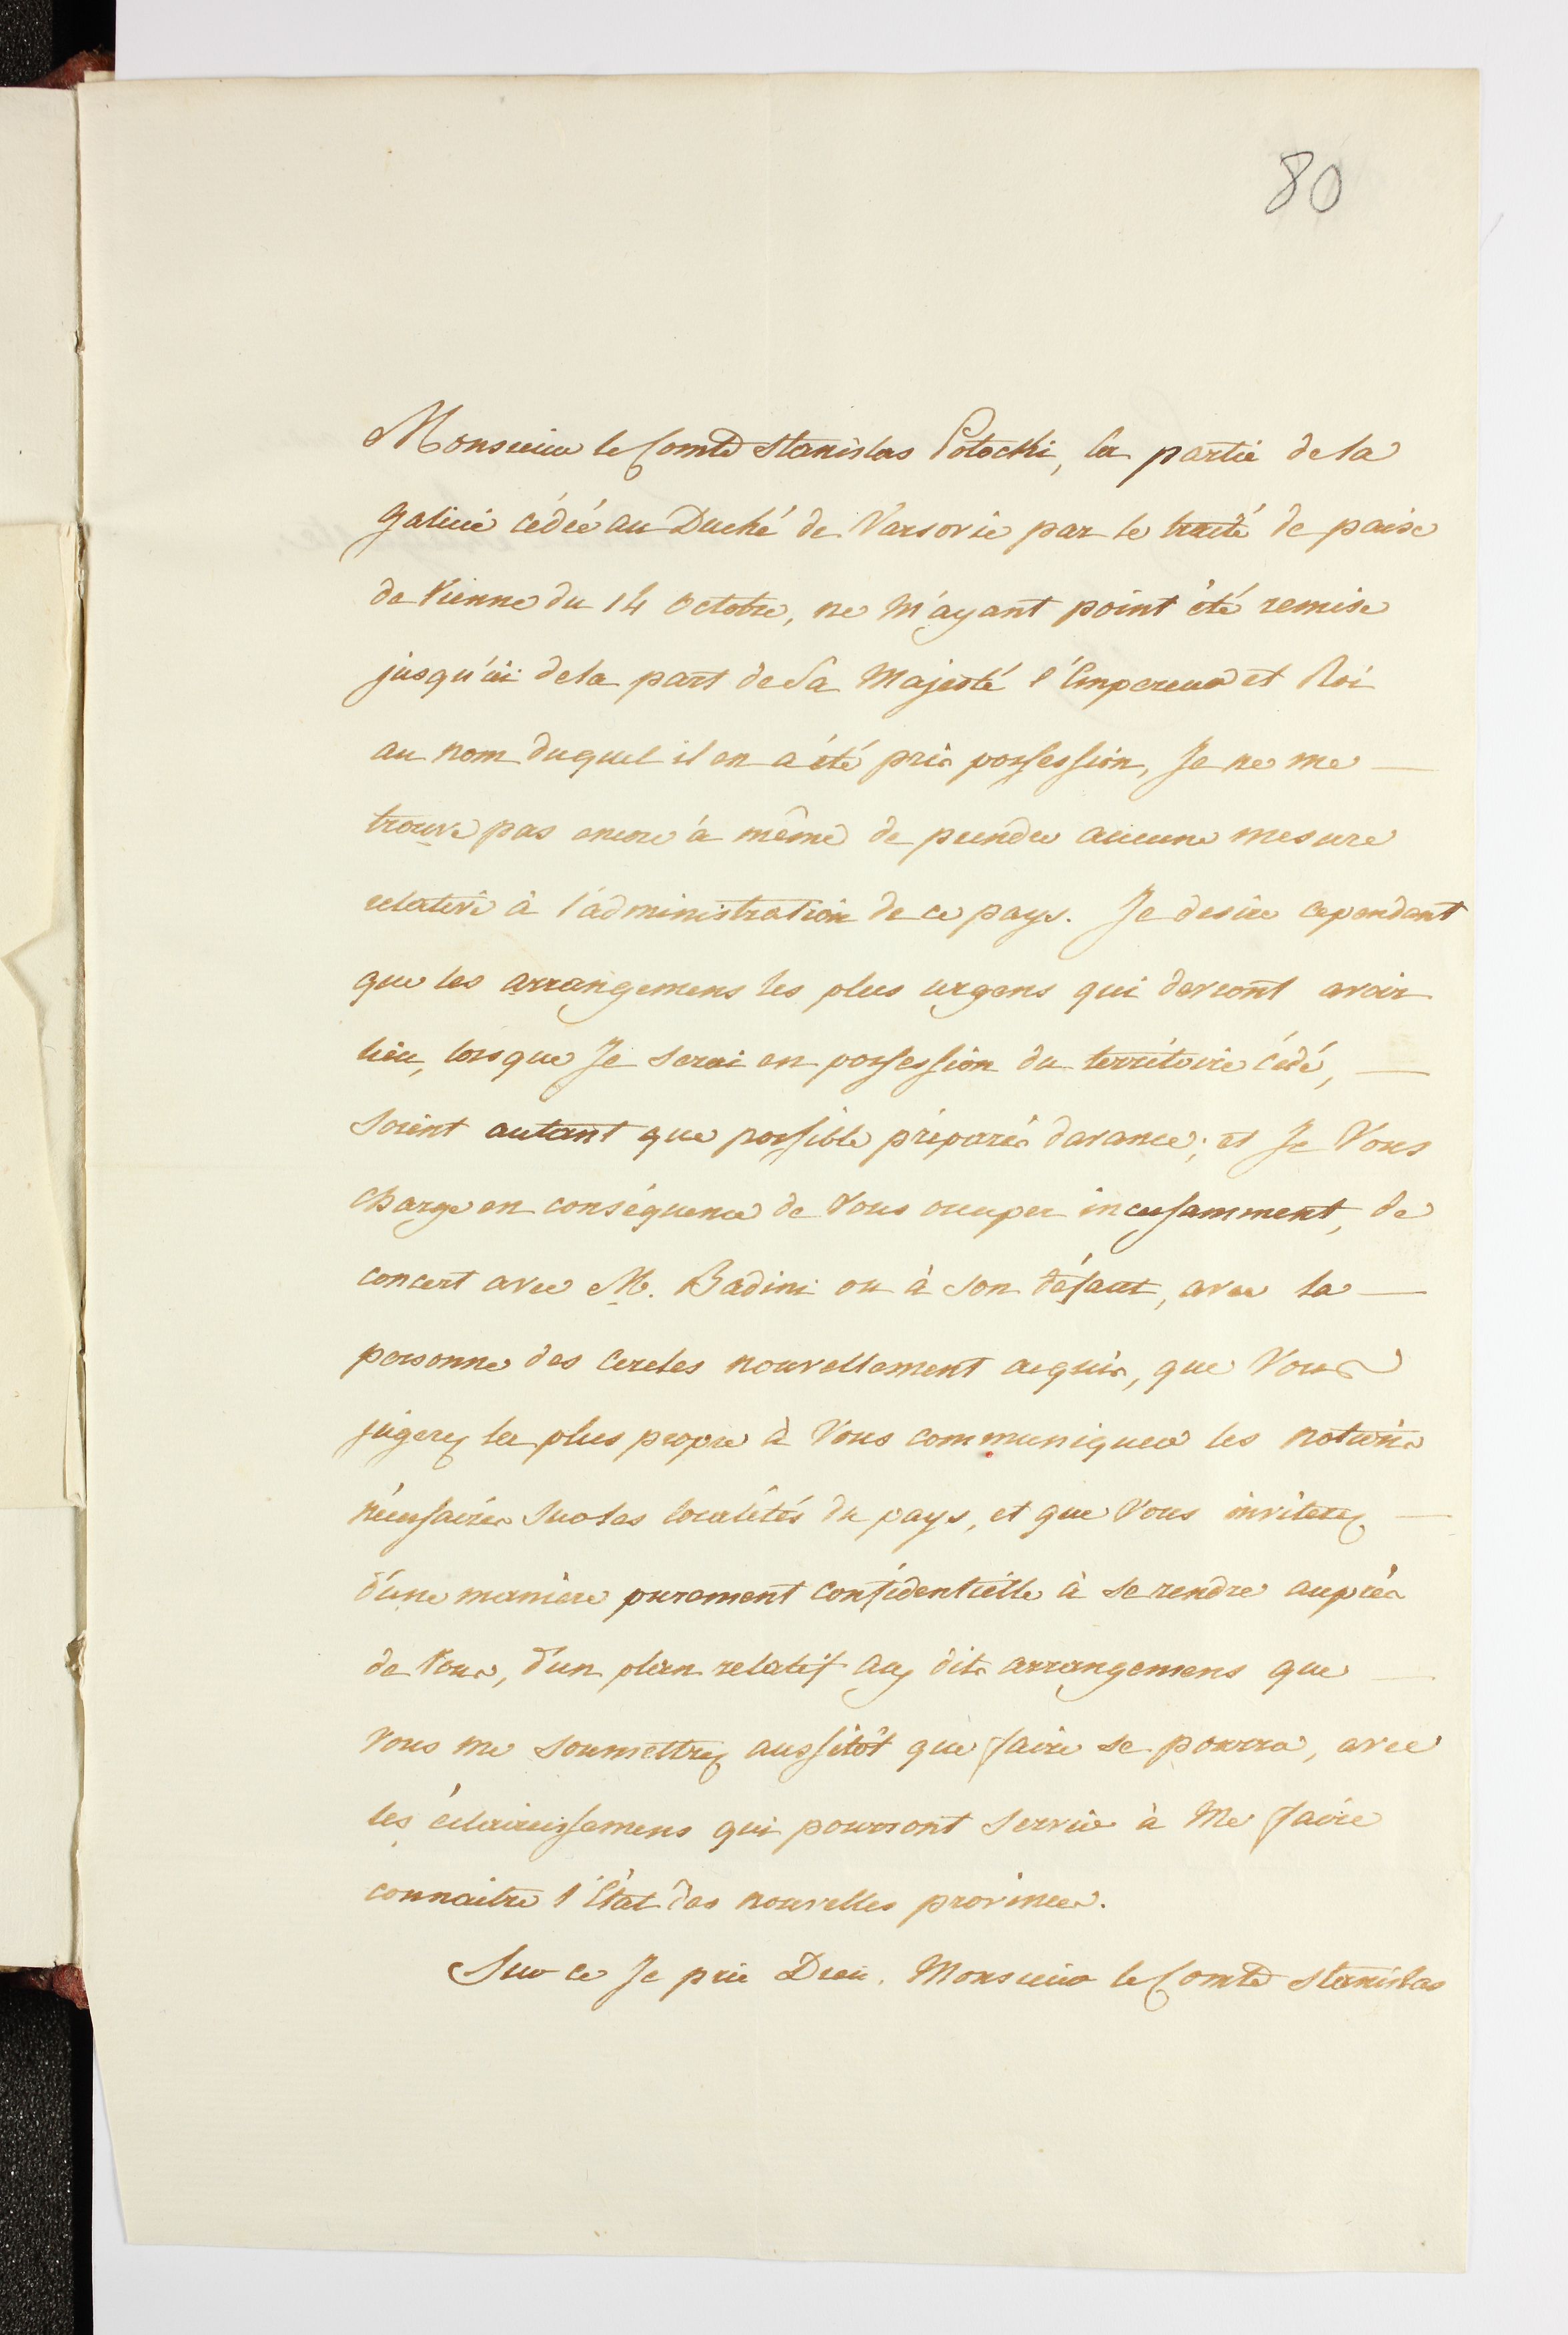 80
Monsieur le Comte Stanislas Potocki, la partie de la
galicie cédée au Duché de Varsovie par le traité de paix
de Vienne du 14 Octobre, ne M'ayant point été remise
jusqu'ici de la part de Sa Majesté l'Empereur et Roi
au nom duquel il en a été pris possession, Je ne me —
trouve pas encore à même de prendre aucune mesure
relative à l'administration de ce pays. Je desire cependant
que les arrangemens les plus urgens qui devront avoir
lieu, lorsque Je serai en possession du territoire cédé, —
soient autant que possible préparés davance; et Je Vous
charge en conséquence de Vous occuper incessamment, de
concert avec M. Badini ou à son défaut, avec la —
personne des cercles nouvellement acquis, que Vous
jugerez la plus propre à Vous communiquer les notions
nécessaires sur les localités du pays, et que Vous inviterez —
d'une manière purement confidentielle à se rendre auprès
de Vous, d'un plan relatif aux dits arrangemens que —
Vous me soumettrez aussitôt que faire se pourra, avec
les éclaircissemens qui pourront servir à Me faire
connaitre l'Etat des nouvelles provinces.
Sur ce Je prie Dieu, Monsieur le Comte Stanislas